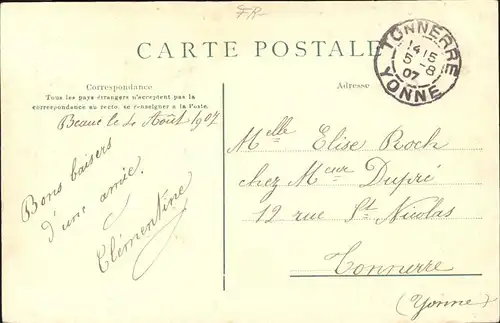 FR
CARTE POSTALE
Correspondance
Tous les pays étrangers n'acceptent pas la
correspondance au recto, se renseigner à la Poste.
le 4 Août 1907
Bons baisers
d'une amie.
Clémentine
Adresse
Melle Elise Roch
chez Meur Dupré
12 rue St Nicolas
Tonnerre
(Yonne)
TONNERRE
14 15
5-8
07
YONNE